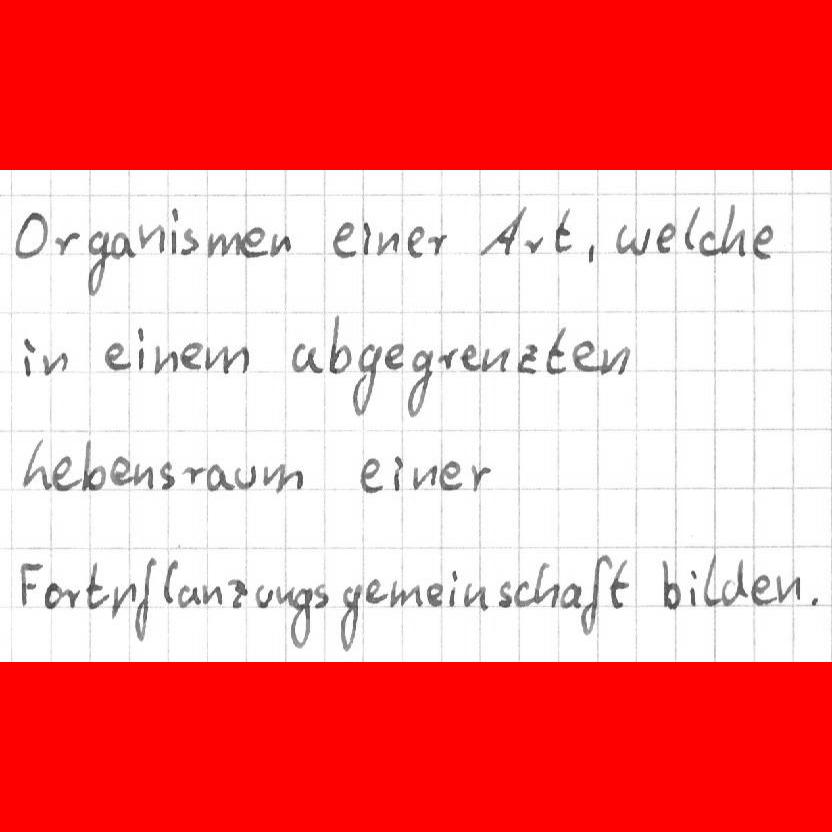 Organismen einer Art, welche
in einem abgegrenzten
Lebensraum einer
Fortpflanzungsgemeinschaft bilden.